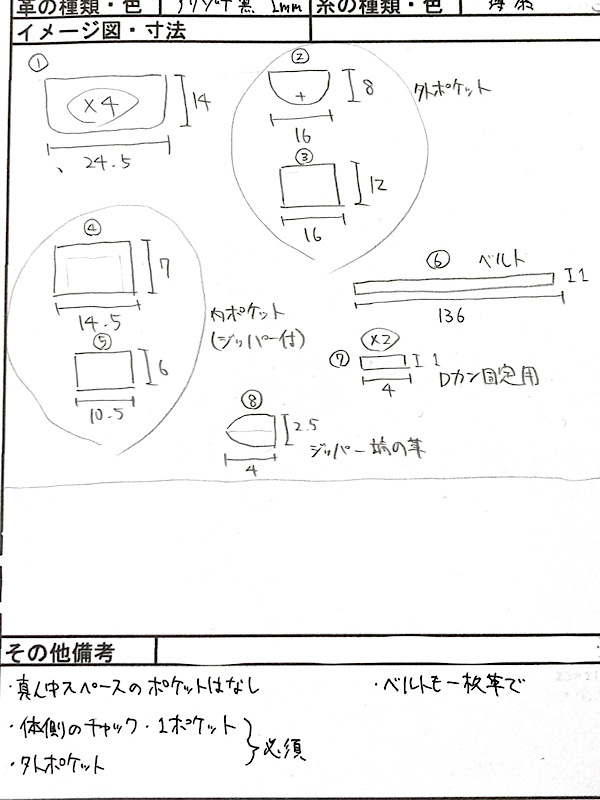 革の種類・色
黒 1mm
糸の種類・色
イメージ図・寸法
①
×4
14
24.5
②
8
16
外ポケット
③
12
16
④
7
14.5
⑤
6
10.5
内ポケット
(ジッパー付)
⑥ ベルト
1
136
×2
⑦
1
4
Dカン固定用
⑧
2.5
4
ジッパー端の革
その他備考
・真ん中スペースのポケットはなし
・ベルトも一枚革で
・体側のチャック・1ポケット
・外ポケット
必須